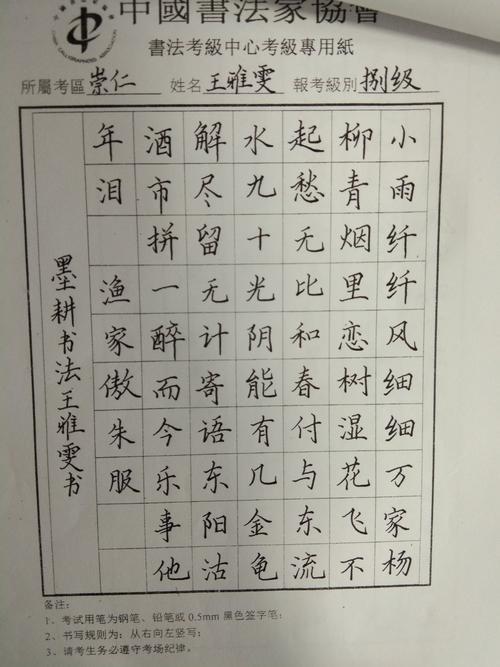 中國書法家協會
書法考級中心考級專用紙
所屬考區 崇仁 姓名 王雅雯 報考級別 捌级
小雨纤纤风细细万家杨
柳青烟里恋树湿花飞不
起愁无比和春付与东流
水九十光阴能有几金龟
解尽留无计寄语东阳沽
酒市拼一醉而今乐事他
年泪 渔家傲朱服
墨耕书法王雅雯书
备注：
1、考试用笔为钢笔、铅笔或0.5mm黑色签字笔；
2、书写规则为：从右向左竖写；
3、请考生务必遵守考场纪律。